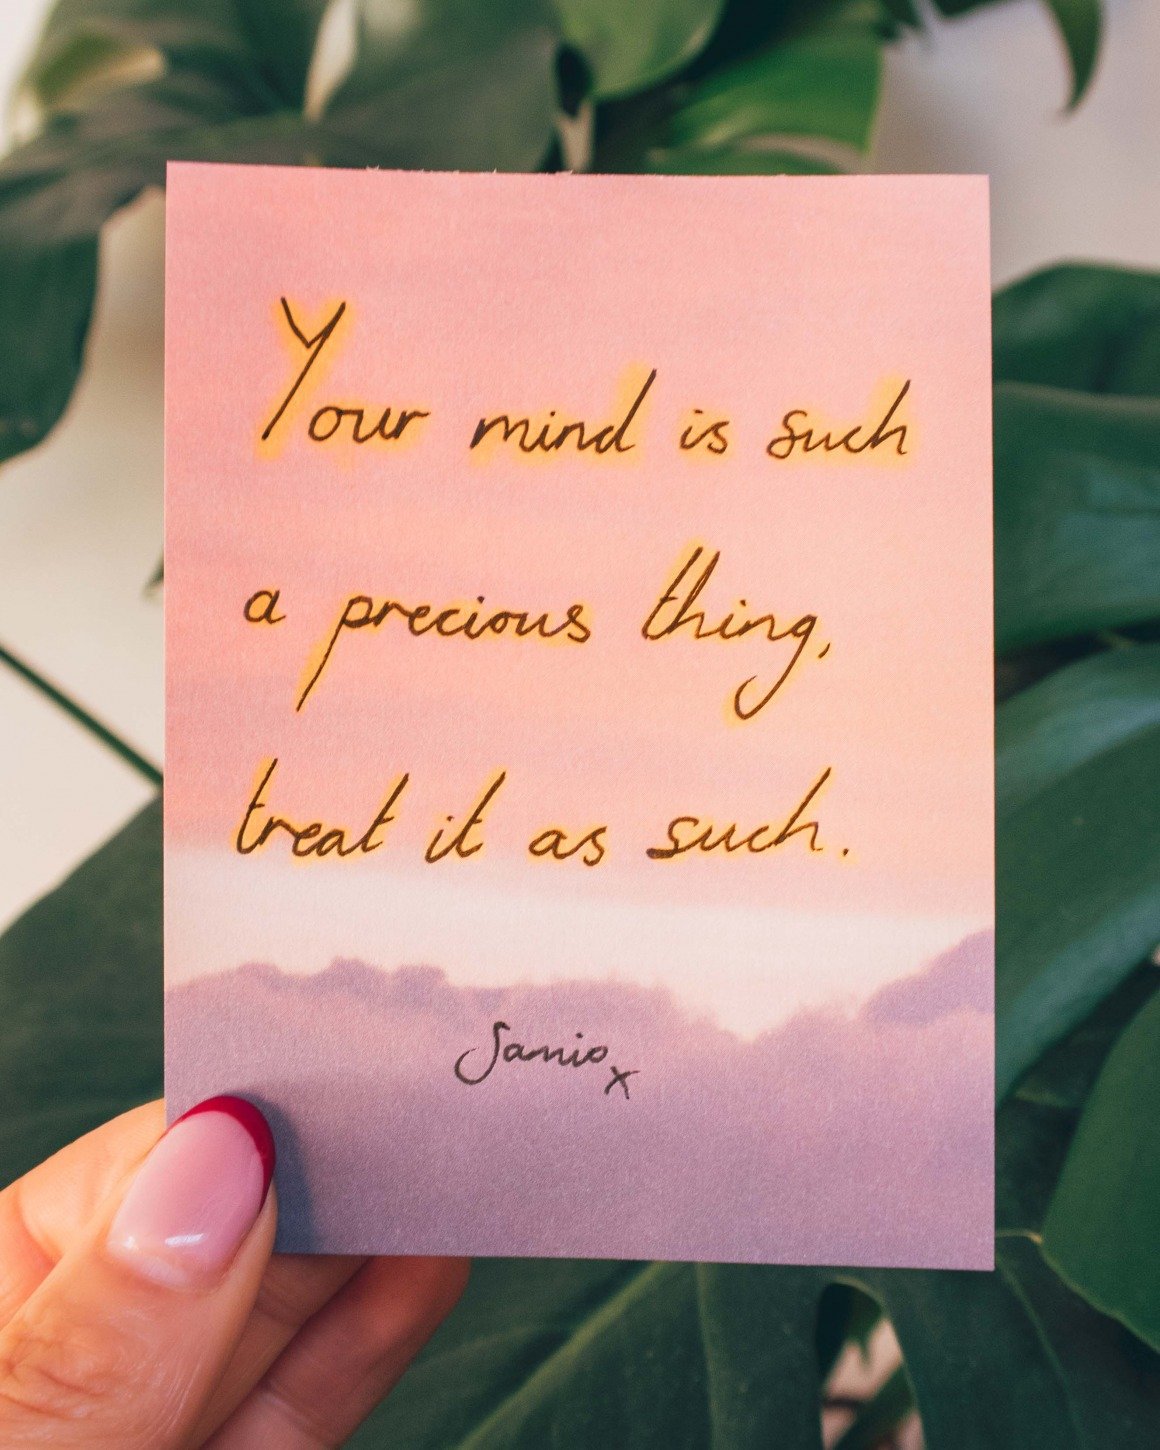 Your mind is such
a precious thing,
treat it as such.
Jamie x